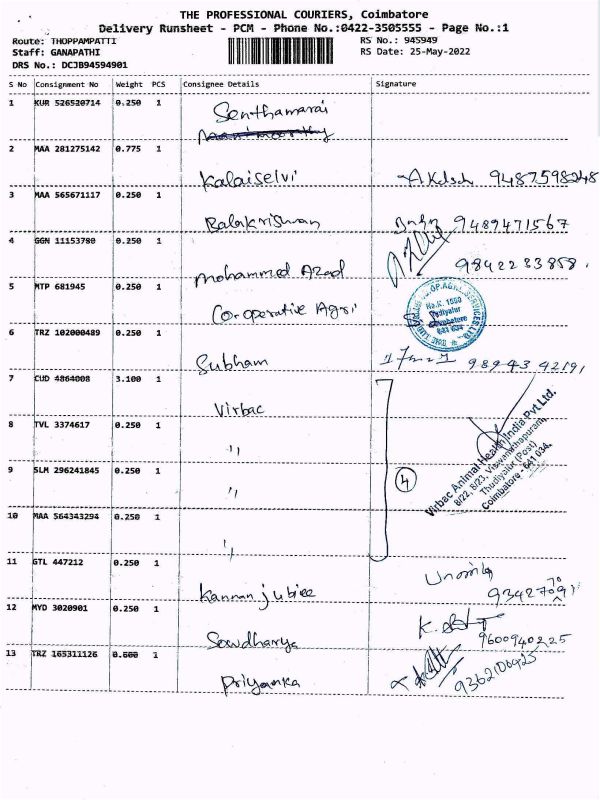 THE PROFESSIONAL COURIERS, Coimbatore
Delivery Runsheet - PCM - Phone No.:0422-3505555 - Page No.:1
Route: THOPPAMPATTI RS No.: 945949
Staff: GANAPATHI RS Date: 25-May-2022
DRS No.: DCJB94594901
S No Consignment No Weight PCS Consignee Details Signature
1 KUR 526520714 0.250 1 Senthamarai
2 MAA 281275142 0.775 1 Kalaiselvi 9487598248
3 MAA 565671117 0.250 1 Balakrishnan 9489471567
4 GGN 11153780 0.250 1 Mohammed Azad 9842233858.
5 MTP 681945 0.250 1 Co-operative Agri
No.K. 1550
Vadiyalur
Coimbatore
641 034
6 TRZ 102000489 0.250 1 Subham 98943 92191
7 CUD 4864008 3.100 1 Virbac
8 TVL 3374617 0.250 1 "
9 SLM 296241845 0.250 1 "
4
Virbac Animal Health India Pvt Ltd.
8/22, 8/23, Viswanathapuram,
Thudiyalur (Post)
Coimbatore - 641 034.
10 MAA 564343294 0.250 1 "
11 GTL 447212 0.250 1 Kannan jubiee
12 MYD 3020901 0.250 1 Sowdharya 9600940225
13 TRZ 165311126 0.600 1 Priyanka